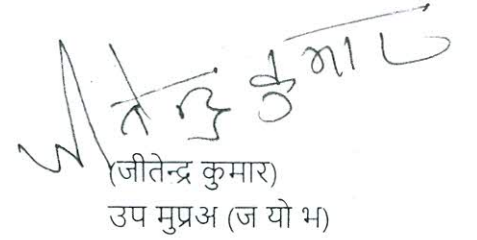 जीतेन्द्र कुमार
(जीतेन्द्र कुमार)
उप मुप्रअ (ज यो भ)